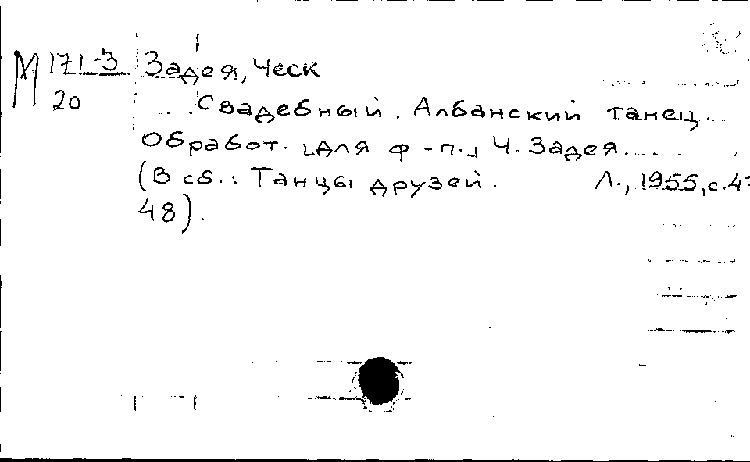 М 171-3
20
Задея, Ческ
Свадебный. Албанский танец.
Обработ. [для ф-п.] Ч. Задея.
(В сб.: Танцы друзей. Л., 1955, с.
48).